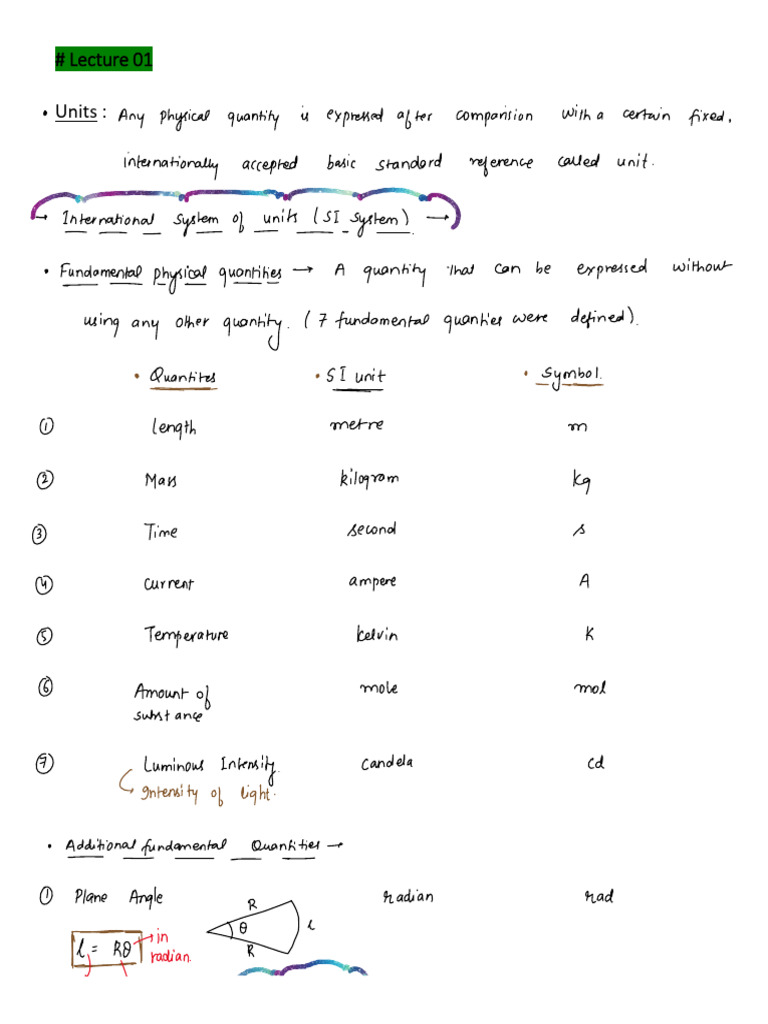 # Lecture 01
• Units : Any physical quantity is expressed after comparision with a certain fixed,
internationally accepted basic standard reference called unit.
→ International system of units (SI system) →
• Fundamental physical quantities → A quantity that can be expressed without
using any other quantity. (7 fundamental quanties were defined).
• Quantites • SI unit • Symbol.
① length metre m
② Mass kilogram kg
③ Time second s
④ current ampere A
⑤ Temperature kelvin K
⑥ Amount of mole mol
substance
⑦ Luminous Intensity. candela cd
Intensity of light.
• Additional fundamental Quantities →
① Plane Angle radian rad
R
θ l
l = Rθ → in
R
radian.